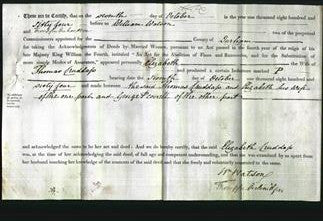 These are to Certify, that on the seventh day of October in the year one thousand eight hundred and
sixty four before William Watson
two of the perpetual
Commissioners appointed for the County of Durham
for taking the Acknowledgments of Deeds by Married Women, pursuant to an Act passed in the fourth year of the reign of his
late Majesty King William the Fourth, intituled "An Act for the Abolition of Fines and Recoveries, and for the Substitution of
more simple Modes of Assurance," appeared personally Elizabeth the Wife of
Thomas and produced a certain Indenture marked P
bearing date the seventh day of October one thousand eight hundred and
sixty four and made between the said Thomas and Elizabeth his wife
of the one part and George of the other part
and acknowledged the same to be her act and deed. And we do hereby certify, that the said Elizabeth
was, at the time of her acknowledging the said deed, of full age and competent understanding, and that she was examined by us apart from
her husband touching her knowledge of the contents of the said deed and that she freely and voluntarily consented to the same.
Wm Watson